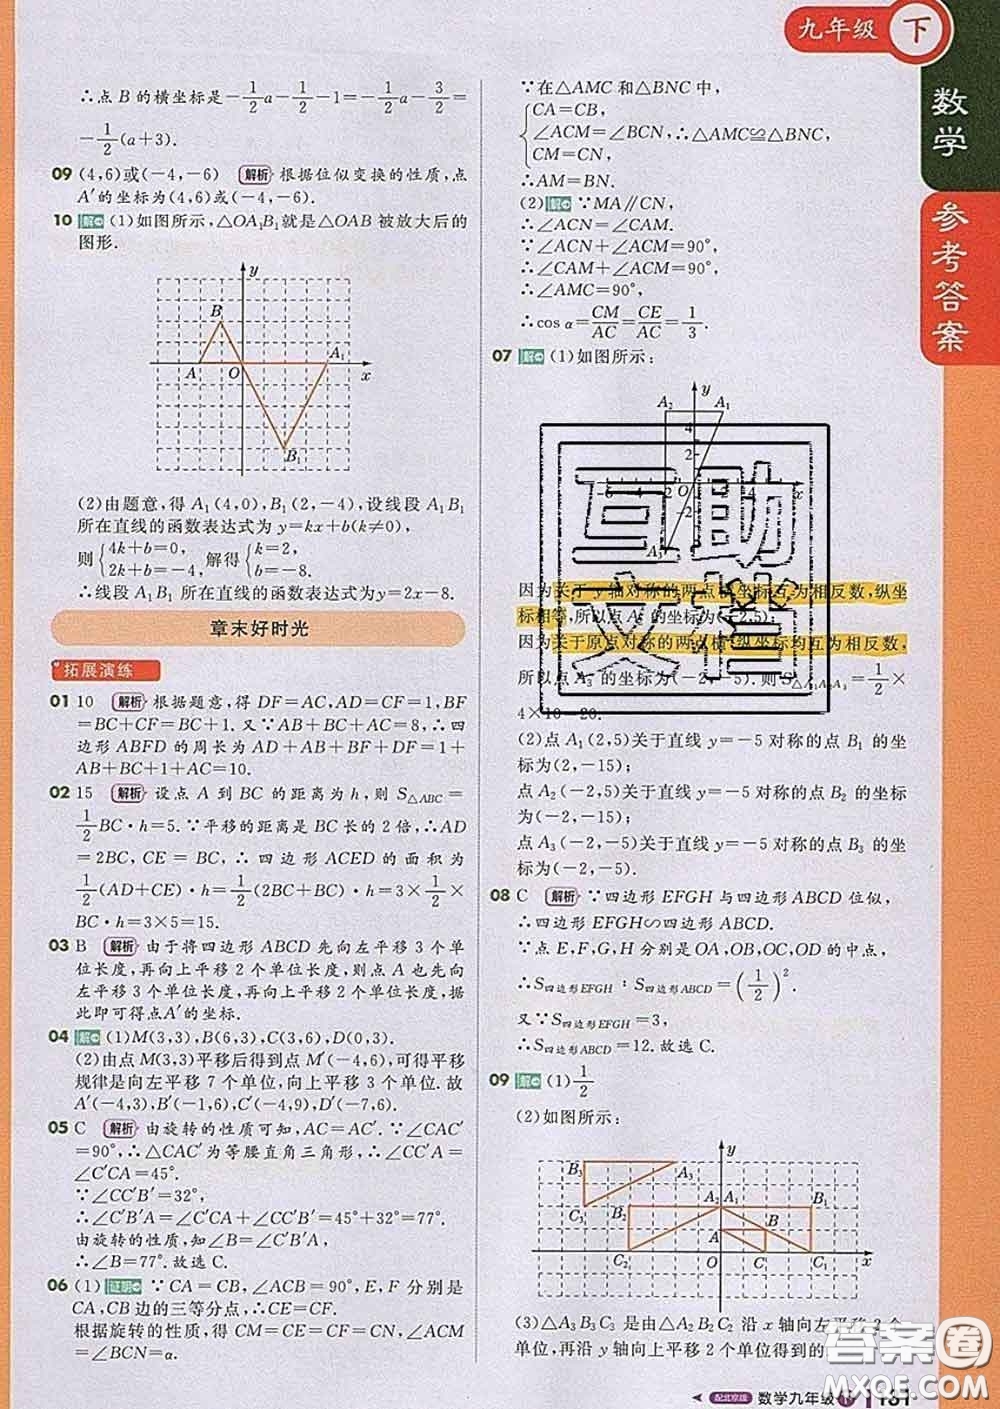 九年级 下
数学
参考答案
∴点 B 的横坐标是-1/2a-1/2-1=-1/2a-3/2=
-1/2(a+3).
09 (4,6)或(-4,-6) 解析 根据位似变换的性质,点
A′的坐标为(4,6)或(-4,-6).
10 解 (1)如图所示,△OA₁B₁就是△OAB 被放大后的
图形.
y
B
A₁
A O x
B₁
(2)由题意,得 A₁(4,0),B₁(2,-4),设线段 A₁B₁
所在直线的函数表达式为 y=kx+b(k≠0),
则{4k+b=0, 2k+b=-4, 解得{k=2, b=-8.
∴线段 A₁B₁ 所在直线的函数表达式为y=2x-8.
章末好时光
拓展演练
01 10 解析 根据题意,得 DF=AC,AD=CF=1,BF
=BC+CF=BC+1. 又∵AB+BC+AC=8,∴四
边形 ABFD 的周长为 AD+AB+BF+DF=1+
AB+BC+1+AC=10.
02 15 解析 设点 A 到 BC 的距离为 h,则 S△ABC=
1/2BC·h=5.∵平移的距离是 BC 长的 2 倍,∴AD
=2BC,CE=BC,∴四边形 ACED 的面积为
1/2(AD+CE)·h=1/2(2BC+BC)·h=3×1/2×
BC·h=3×5=15.
03 B 解析 由于将四边形 ABCD 先向左平移 3 个单
位长度,再向上平移 2 个单位长度,则点 A 也先向
左平移 3 个单位长度,再向上平移 2 个单位长度,据
此即可得点A′的坐标.
04 解 (1)M(3,3),B(6,3),C(3,6),D(0,3).
(2)由点 M(3,3)平移后得到点 M′(-4,6),可得平移
规律是向左平移 7 个单位,向上平移 3 个单位. 故
A′(-4,3),B′(-1,6),C′(-4,9),D′(-7,6).
05 C 解析 由旋转的性质可知,AC=AC′.∵∠CAC′
=90°,∴△CAC′为等腰直角三角形,∴∠CC′A=
∠C′CA=45°.
∵∠CC′B′=32°,
∴∠C′B′A=∠C′CA+∠CC′B′=45°+32°=77°.
由旋转的性质,得∠B=∠C′B′A,
∴∠B=77°.故选 C.
06 (1)证明 ∵CA=CB,∠ACB=90°,E,F 分别是
CA,CB 边的三等分点,∴CE=CF.
根据旋转的性质,得 CM=CE=CF=CN,∠ACM=
∠BCN=α.
∵在△AMC 和△BNC 中,
{CA=CB,
∠ACM=∠BCN,∴△AMC≌△BNC,
CM=CN,
∴AM=BN.
(2)解 ∵MA∥CN,
∴∠ACN=∠CAM.
∵∠ACN+∠ACM=90°,
∴∠CAM+∠ACM=90°,
∴∠AMC=90°,
∴cos α=CM/AC=CE/AC=1/3.
07 解 (1)如图所示:
A₂ y A₁
4
2
O x
-2
A₃
互助文档
因为关于 y 轴对称的两点横坐标互为相反数,纵坐
标相等,所以点 A₂ 的坐标为(-2,5);
因为关于原点对称的两点横、纵坐标均互为相反数,
所以点 A₃ 的坐标为(-2,-5). 则 S△A₁A₂A₃=1/2×
4×10=20.
(2)点 A₁(2,5)关于直线 y=-5 对称的点 B₁ 的坐
标为(2,-15);
点 A₂(-2,5)关于直线 y=-5 对称的点 B₂ 的坐标
为(-2,-15);
点 A₃(-2,-5)关于直线 y=-5 对称的点 B₃ 的坐
标为(-2,-5).
08 C 解析 ∵四边形 EFGH 与四边形 ABCD 位似,
∴四边形 EFGH∽四边形 ABCD.
∵点 E,F,G,H 分别是 OA,OB,OC,OD 的中点,
∴S四边形EFGH:S四边形ABCD=(1/2)².
又∵S四边形EFGH=3,
∴S四边形ABCD=12. 故选 C.
09 解 (1)1/2
(2)如图所示:
y
B₃ A₃
C₃ B₂ A₂ A₁ B₁
A B
C₂ O C C₁ x
(3)△A₃B₃C₃ 是由△A₂B₂C₂ 沿 x 轴向左平移 2 个
单位,再沿 y 轴向上平移 2 个单位得到的
答案圈
配北京版 数学九年级 下 131